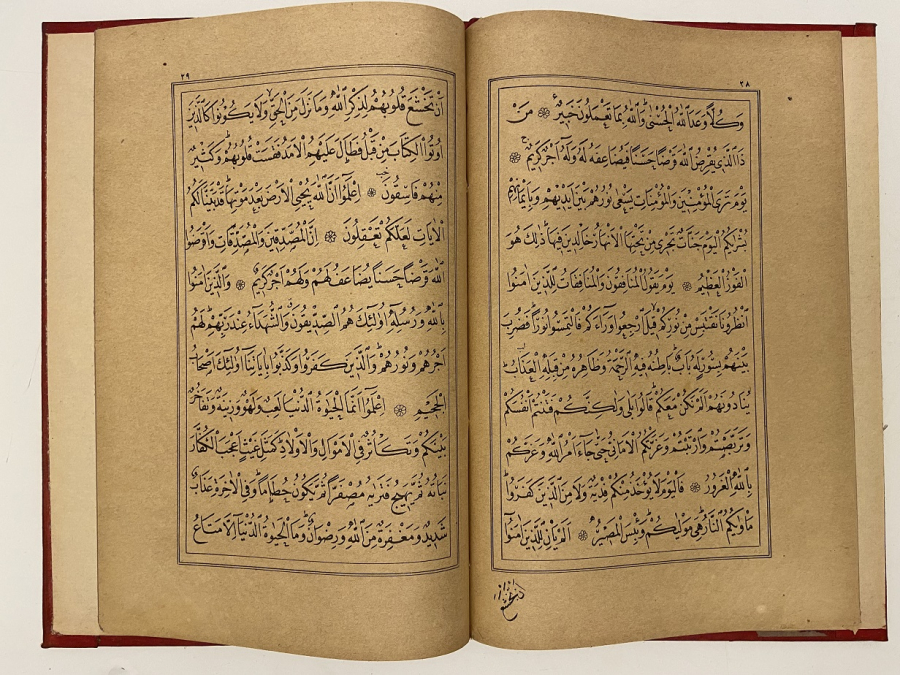 ٢٨
وَكُلًّا وَعَدَ اللّٰهُ الْحُسْنٰى وَاللّٰهُ بِمَا تَعْمَلُونَ خَبِيرٌ ۞ مَنْ
ذَا الَّذِي يُقْرِضُ اللّٰهَ قَرْضًا حَسَنًا فَيُضَاعِفَهُ لَهُ وَلَهُ اَجْرٌ كَرِيمٌ ۞
يَوْمَ تَرَى الْمُؤْمِنِينَ وَالْمُؤْمِنَاتِ يَسْعٰى نُورُهُمْ بَيْنَ اَيْدِيهِمْ وَبِاَيْمَانِهِمْ
بُشْرٰيكُمُ الْيَوْمَ جَنَّاتٌ تَجْرِي مِنْ تَحْتِهَا الْاَنْهَارُ خَالِدِينَ فِيهَا ذٰلِكَ هُوَ
الْفَوْزُ الْعَظِيمُ ۞ يَوْمَ يَقُولُ الْمُنَافِقُونَ وَالْمُنَافِقَاتُ لِلَّذِينَ اٰمَنُوا
انْظُرُونَا نَقْتَبِسْ مِنْ نُورِكُمْ قِيلَ ارْجِعُوا وَرَاءَكُمْ فَالْتَمِسُوا نُورًا فَضُرِبَ
بَيْنَهُمْ بِسُورٍ لَهُ بَابٌ بَاطِنُهُ فِيهِ الرَّحْمَةُ وَظَاهِرُهُ مِنْ قِبَلِهِ الْعَذَابُ
يُنَادُونَهُمْ اَلَمْ نَكُنْ مَعَكُمْ قَالُوا بَلٰى وَلٰكِنَّكُمْ فَتَنْتُمْ اَنْفُسَكُمْ
وَتَرَبَّصْتُمْ وَارْتَبْتُمْ وَغَرَّتْكُمُ الْاَمَانِيُّ حَتّٰى جَاءَ اَمْرُ اللّٰهِ وَغَرَّكُمْ
بِاللّٰهِ الْغَرُورُ ۞ فَالْيَوْمَ لَا يُؤْخَذُ مِنْكُمْ فِدْيَةٌ وَلَا مِنَ الَّذِينَ كَفَرُوا
مَأْوٰيكُمُ النَّارُ هِيَ مَوْلٰيكُمْ وَبِئْسَ الْمَصِيرُ ۞ اَلَمْ يَأْنِ لِلَّذِينَ اٰمَنُوا
٢٩
اَنْ تَخْشَعَ قُلُوبُهُمْ لِذِكْرِ اللّٰهِ وَمَا نَزَلَ مِنَ الْحَقِّ وَلَا يَكُونُوا كَالَّذِينَ
اُوتُوا الْكِتَابَ مِنْ قَبْلُ فَطَالَ عَلَيْهِمُ الْاَمَدُ فَقَسَتْ قُلُوبُهُمْ وَكَثِيرٌ
مِنْهُمْ فَاسِقُونَ ۞ اِعْلَمُوا اَنَّ اللّٰهَ يُحْيِي الْاَرْضَ بَعْدَ مَوْتِهَا قَدْ بَيَّنَّا لَكُمُ
الْاٰيَاتِ لَعَلَّكُمْ تَعْقِلُونَ ۞ اِنَّ الْمُصَّدِّقِينَ وَالْمُصَّدِّقَاتِ وَاَقْرَضُوا
اللّٰهَ قَرْضًا حَسَنًا يُضَاعَفُ لَهُمْ وَلَهُمْ اَجْرٌ كَرِيمٌ ۞ وَالَّذِينَ اٰمَنُوا
بِاللّٰهِ وَرُسُلِهِ اُولٰئِكَ هُمُ الصِّدِّيقُونَ وَالشُّهَدَاءُ عِنْدَ رَبِّهِمْ لَهُمْ
اَجْرُهُمْ وَنُورُهُمْ وَالَّذِينَ كَفَرُوا وَكَذَّبُوا بِاٰيَاتِنَا اُولٰئِكَ اَصْحَابُ
الْجَحِيمِ ۞ اِعْلَمُوا اَنَّمَا الْحَيٰوةُ الدُّنْيَا لَعِبٌ وَلَهْوٌ وَزِينَةٌ وَتَفَاخُرٌ
بَيْنَكُمْ وَتَكَاثُرٌ فِي الْاَمْوَالِ وَالْاَوْلَادِ كَمَثَلِ غَيْثٍ اَعْجَبَ الْكُفَّارَ
نَبَاتُهُ ثُمَّ يَهِيجُ فَتَرٰيهُ مُصْفَرًّا ثُمَّ يَكُونُ حُطَامًا وَفِي الْاٰخِرَةِ عَذَابٌ
شَدِيدٌ وَمَغْفِرَةٌ مِنَ اللّٰهِ وَرِضْوَانٌ وَمَا الْحَيٰوةُ الدُّنْيَا اِلَّا مَتَاعُ